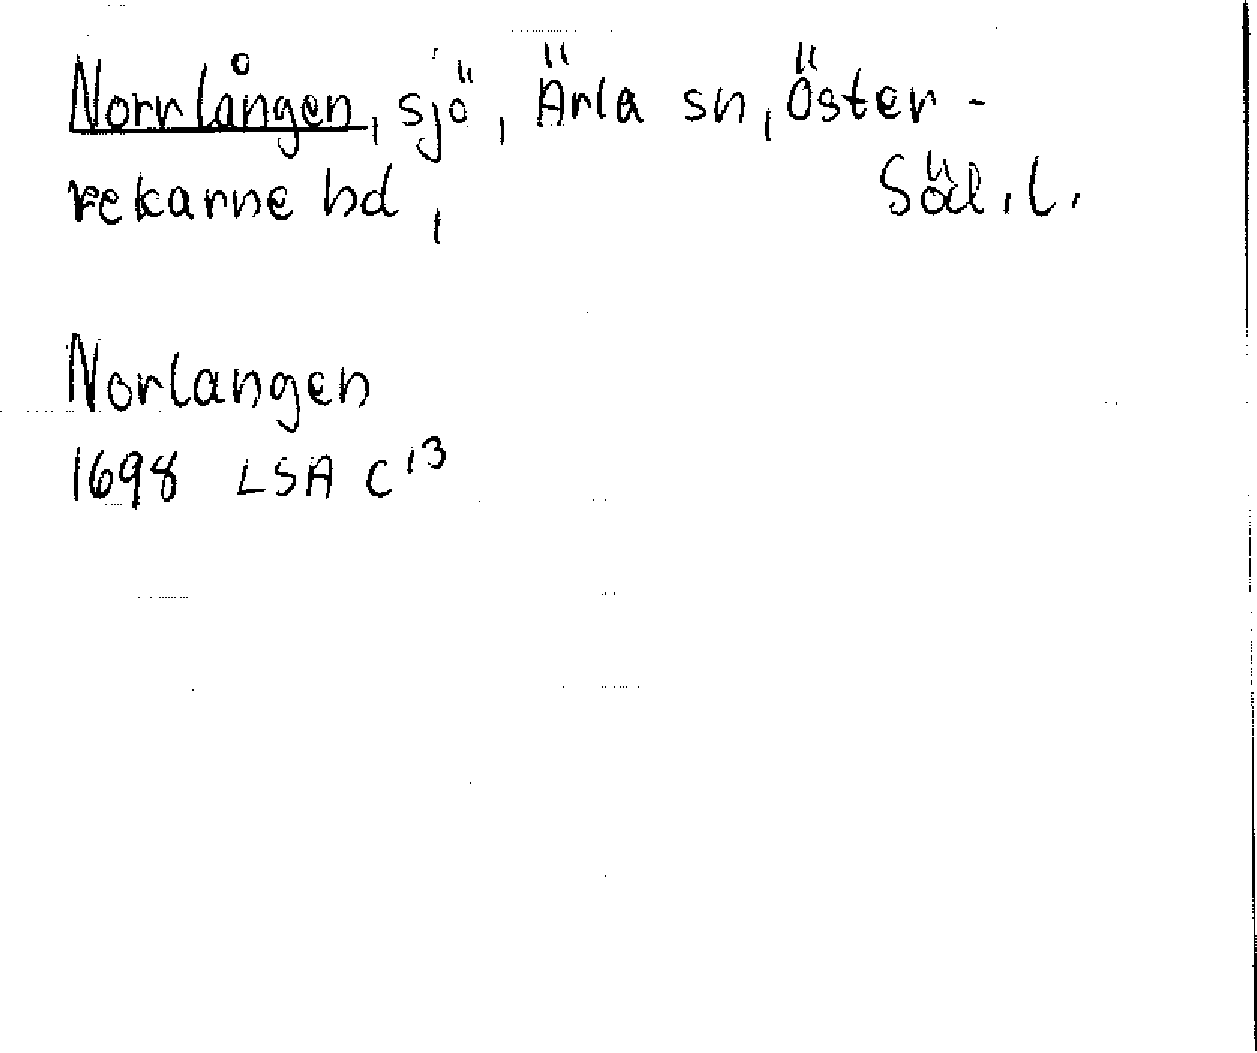 Norrlången, sjö, Ärla sn, Öster-
rekarne hd, Söd. l.
Norlangen
1698 LSA C 13